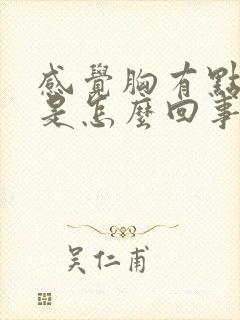 感覺胸有點
是怎麼回事
吴仁甫